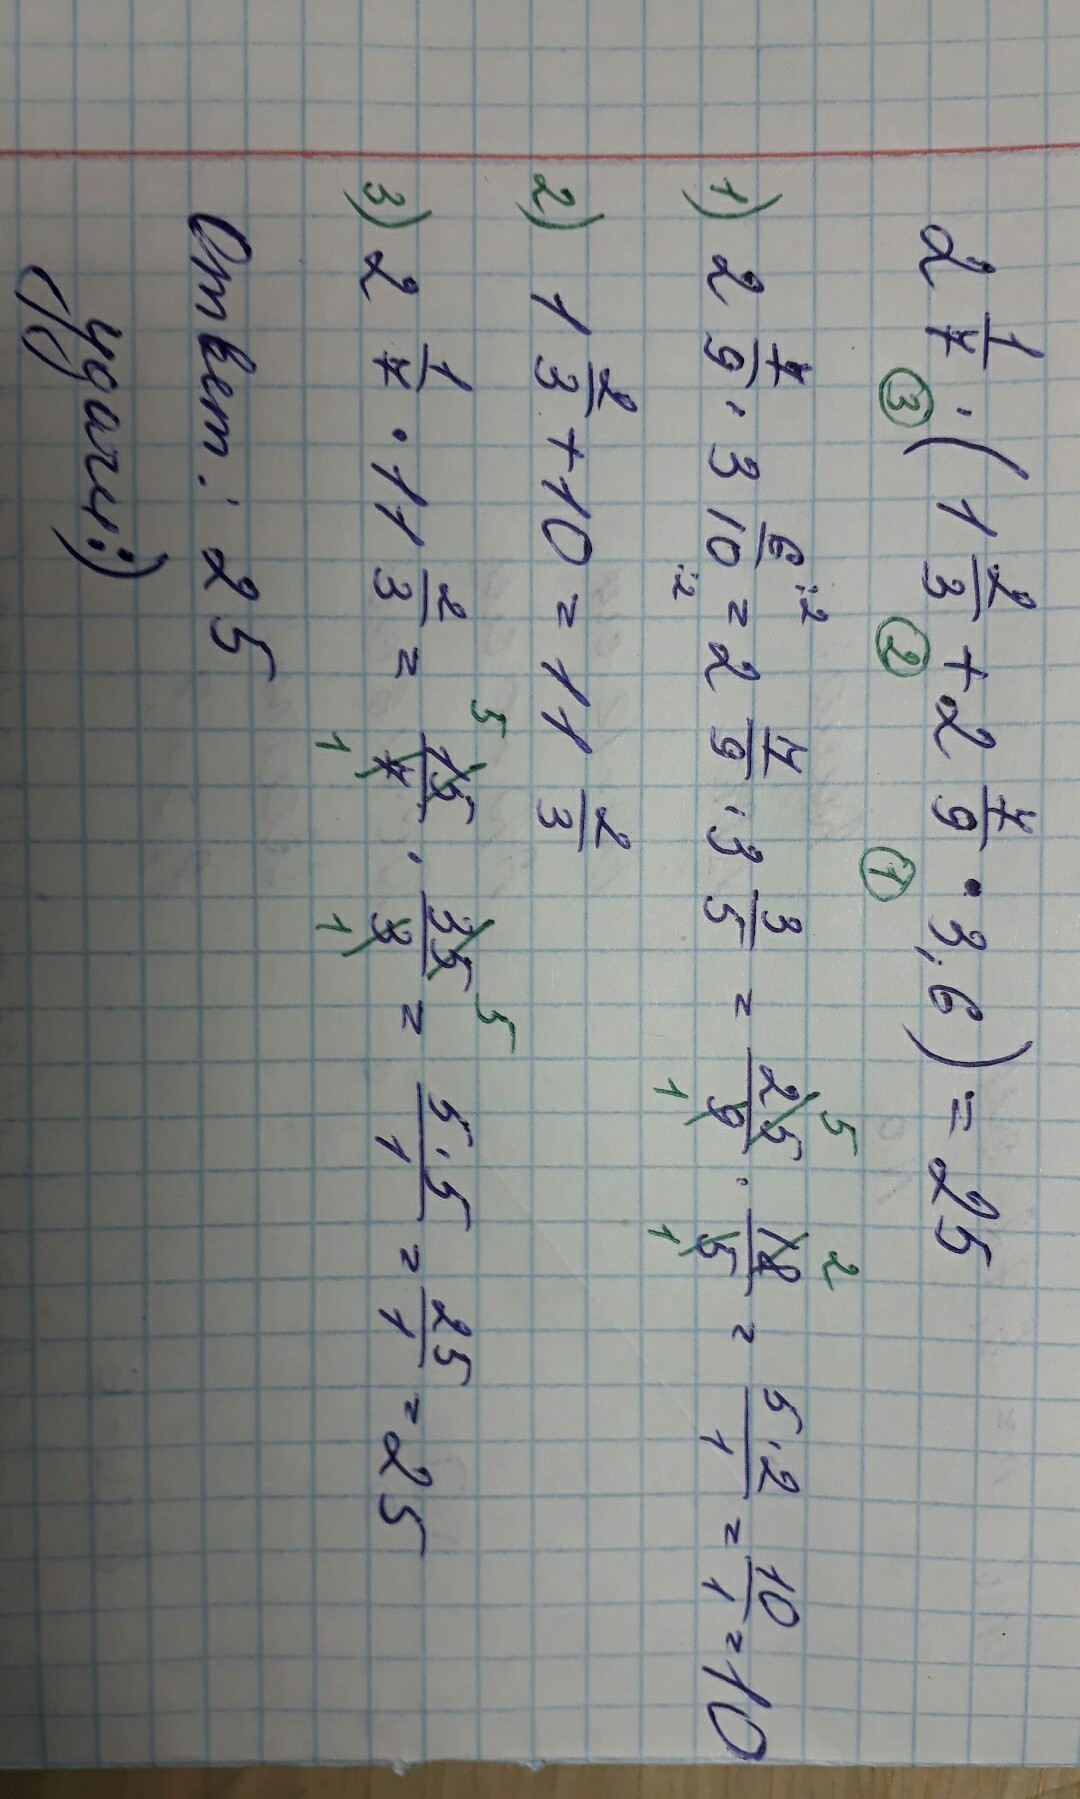 2 1/7 · (1 2/3 + 2 7/9 · 3,6) = 25
③ ② ①
1) 2 7/9 · 3 6:2/10:2 = 2 7/9 · 3 3/5 = 25/9 · 18/5 = 5·2/1 = 10/1 = 10
5 2
1 1
2) 1 2/3 + 10 = 11 2/3
3) 2 1/7 · 11 2/3 = 15/7 · 35/3 = 5·5/1 = 25/1 = 25
5 5
1 1
Ответ: 25
удачи:)